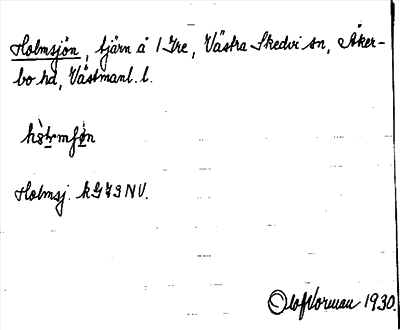 Holmsjön, tjärn å 1 Yre, Västra Skedvi sn, Åker-
bo hd, Västmanl. l.
Holmsj. kG 73 NV.
Olof Norman 1930.